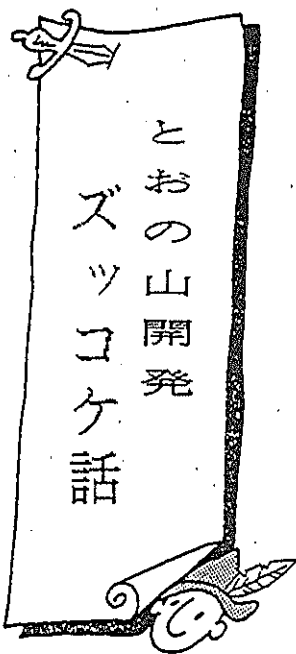 とおの山開発
ズッコケ話